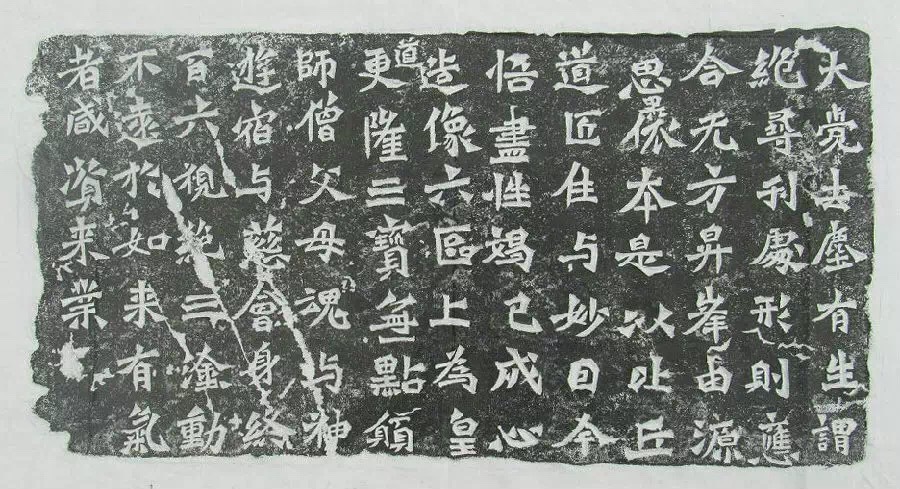 大覺去塵有生謂
絕尋刊處形則應
合无方昇峯由源
思㬥本是以止丘
道匠住与妙日今
悟盡性竭已成心
造像六區上為皇
更隆三寶無點願道
師僧父母魂与神
遊宿与慈會身終
百六視絕三塗動
不遠於如来有氣
者咸資来業